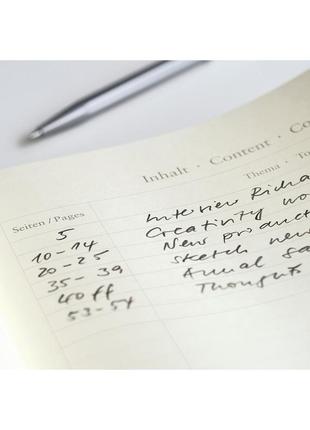 Inhalt · Content · Co
Seiten / Pages Thema · To
5 Interview Richa
10-14 Creativity wo
20-25 New product
35-39 Sketch new
40 ff Annual Sa
53-54 Thoughts